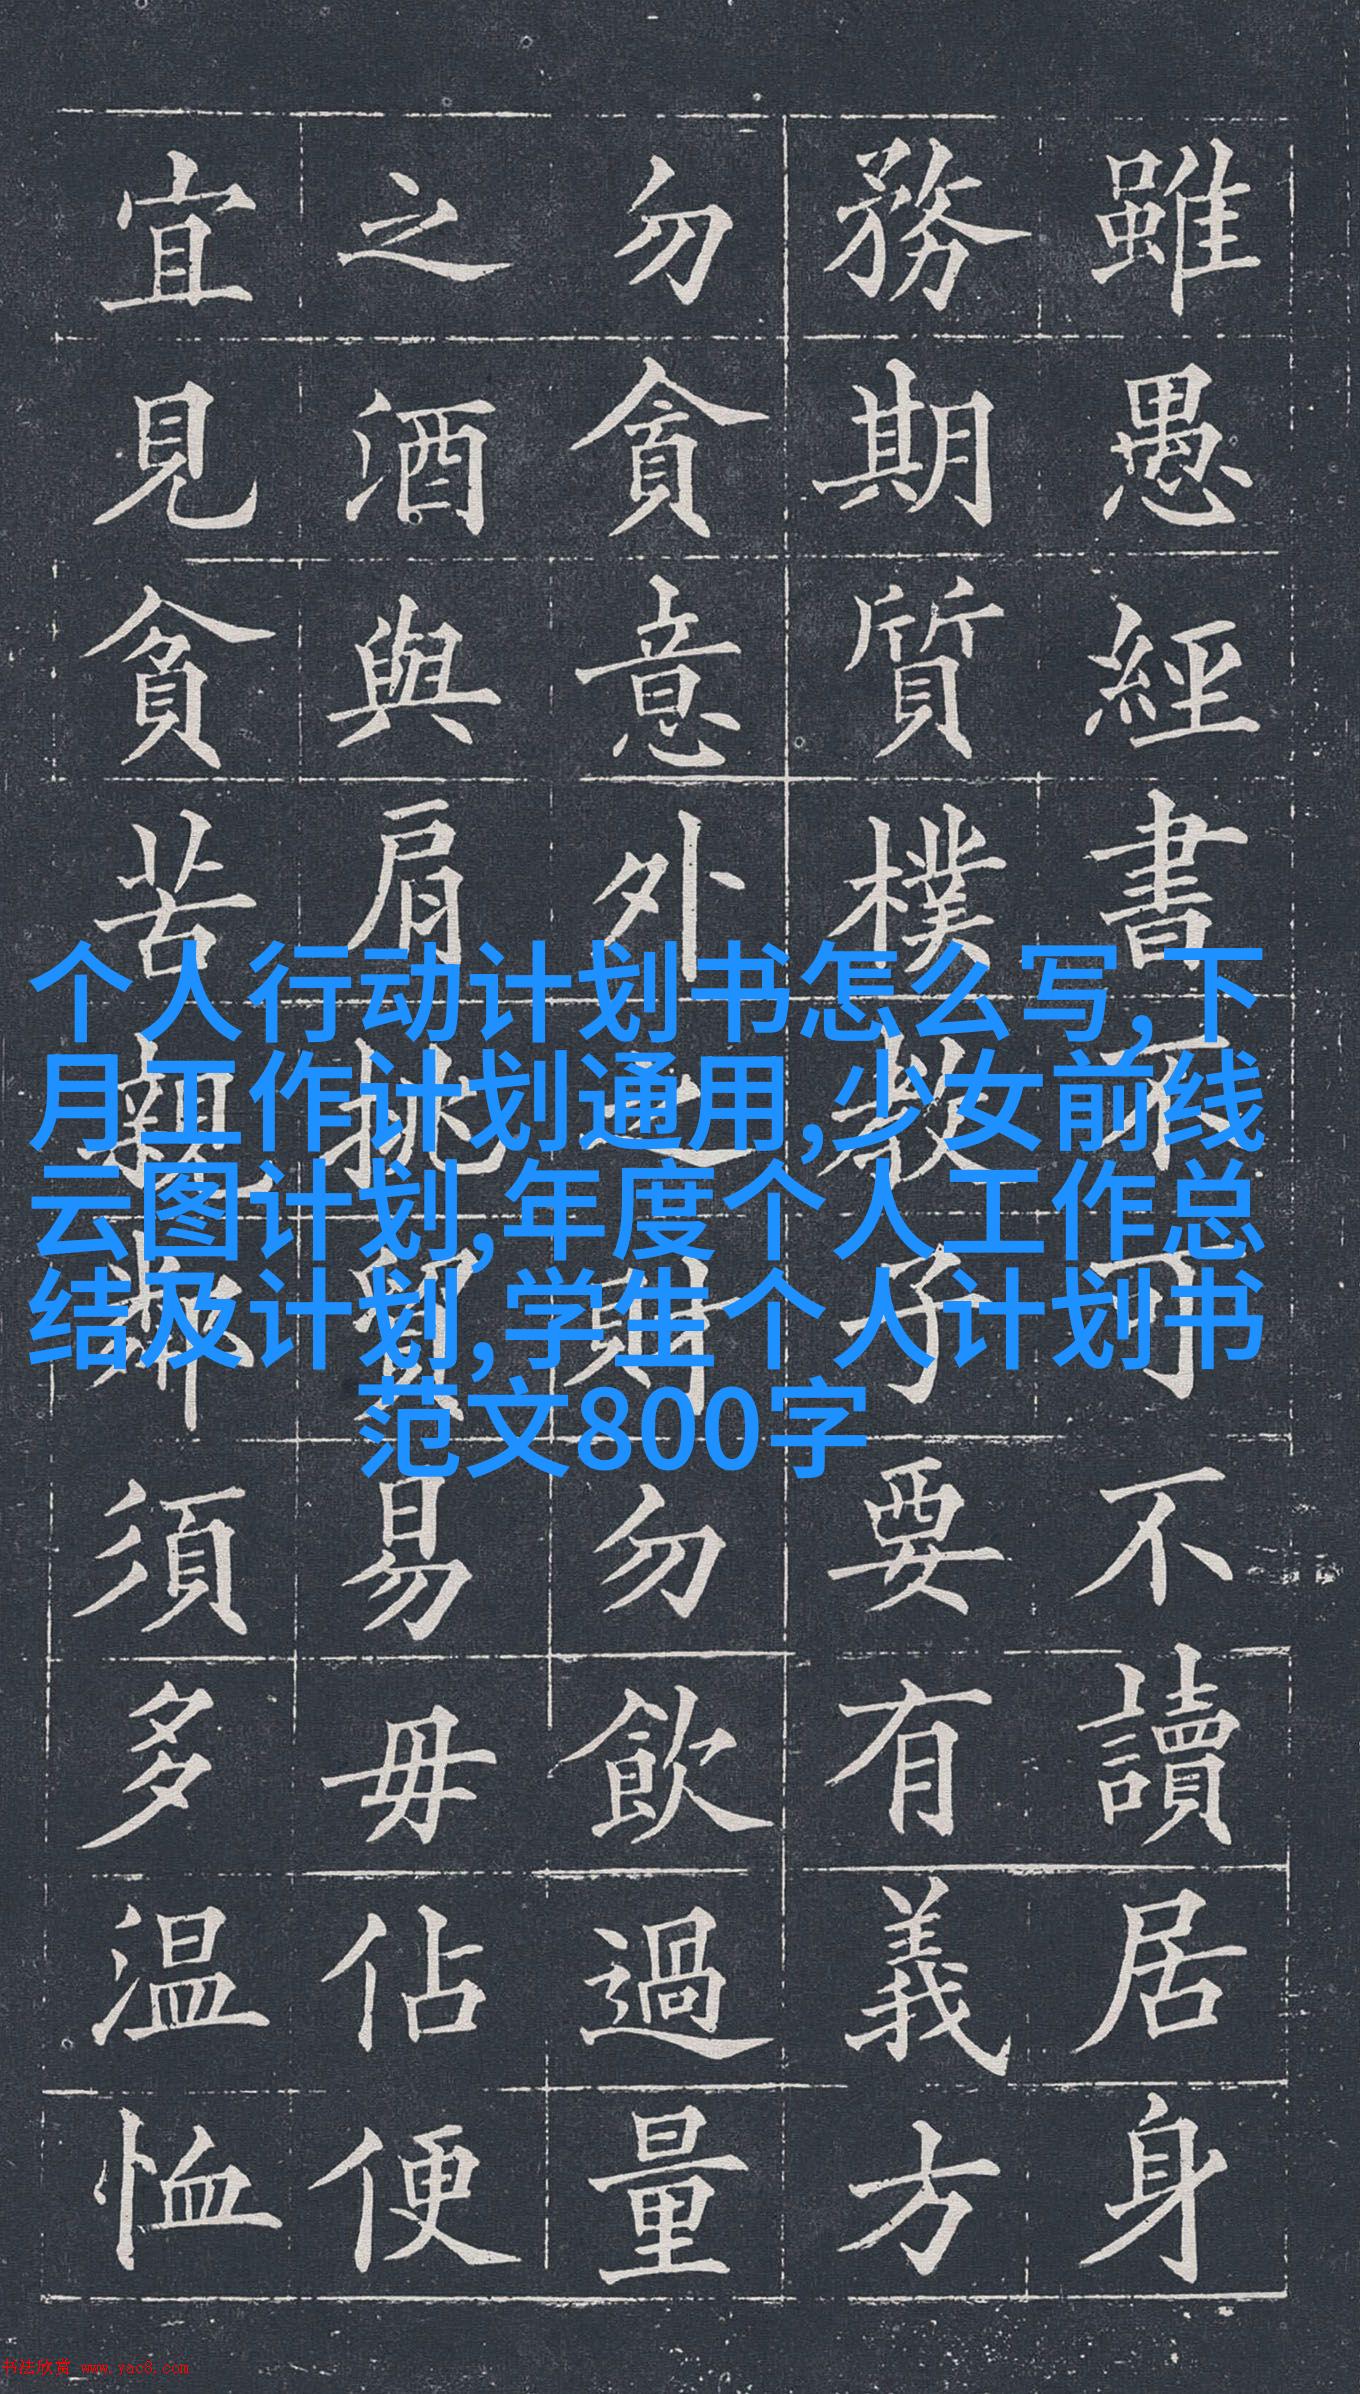 雖愚經書不可不讀居身
務期質樸教子要有義方
勿貪意外之財勿飲過量
之酒與肩挑貿易毋佔便
宜見貧苦親鄰須多温恤
个人行动计划书怎么写,下
月工作计划通用,少女前线
云图计划,年度个人工作总
结及计划,学生个人计划书
范文800字
书法欣赏 www.yac8.com